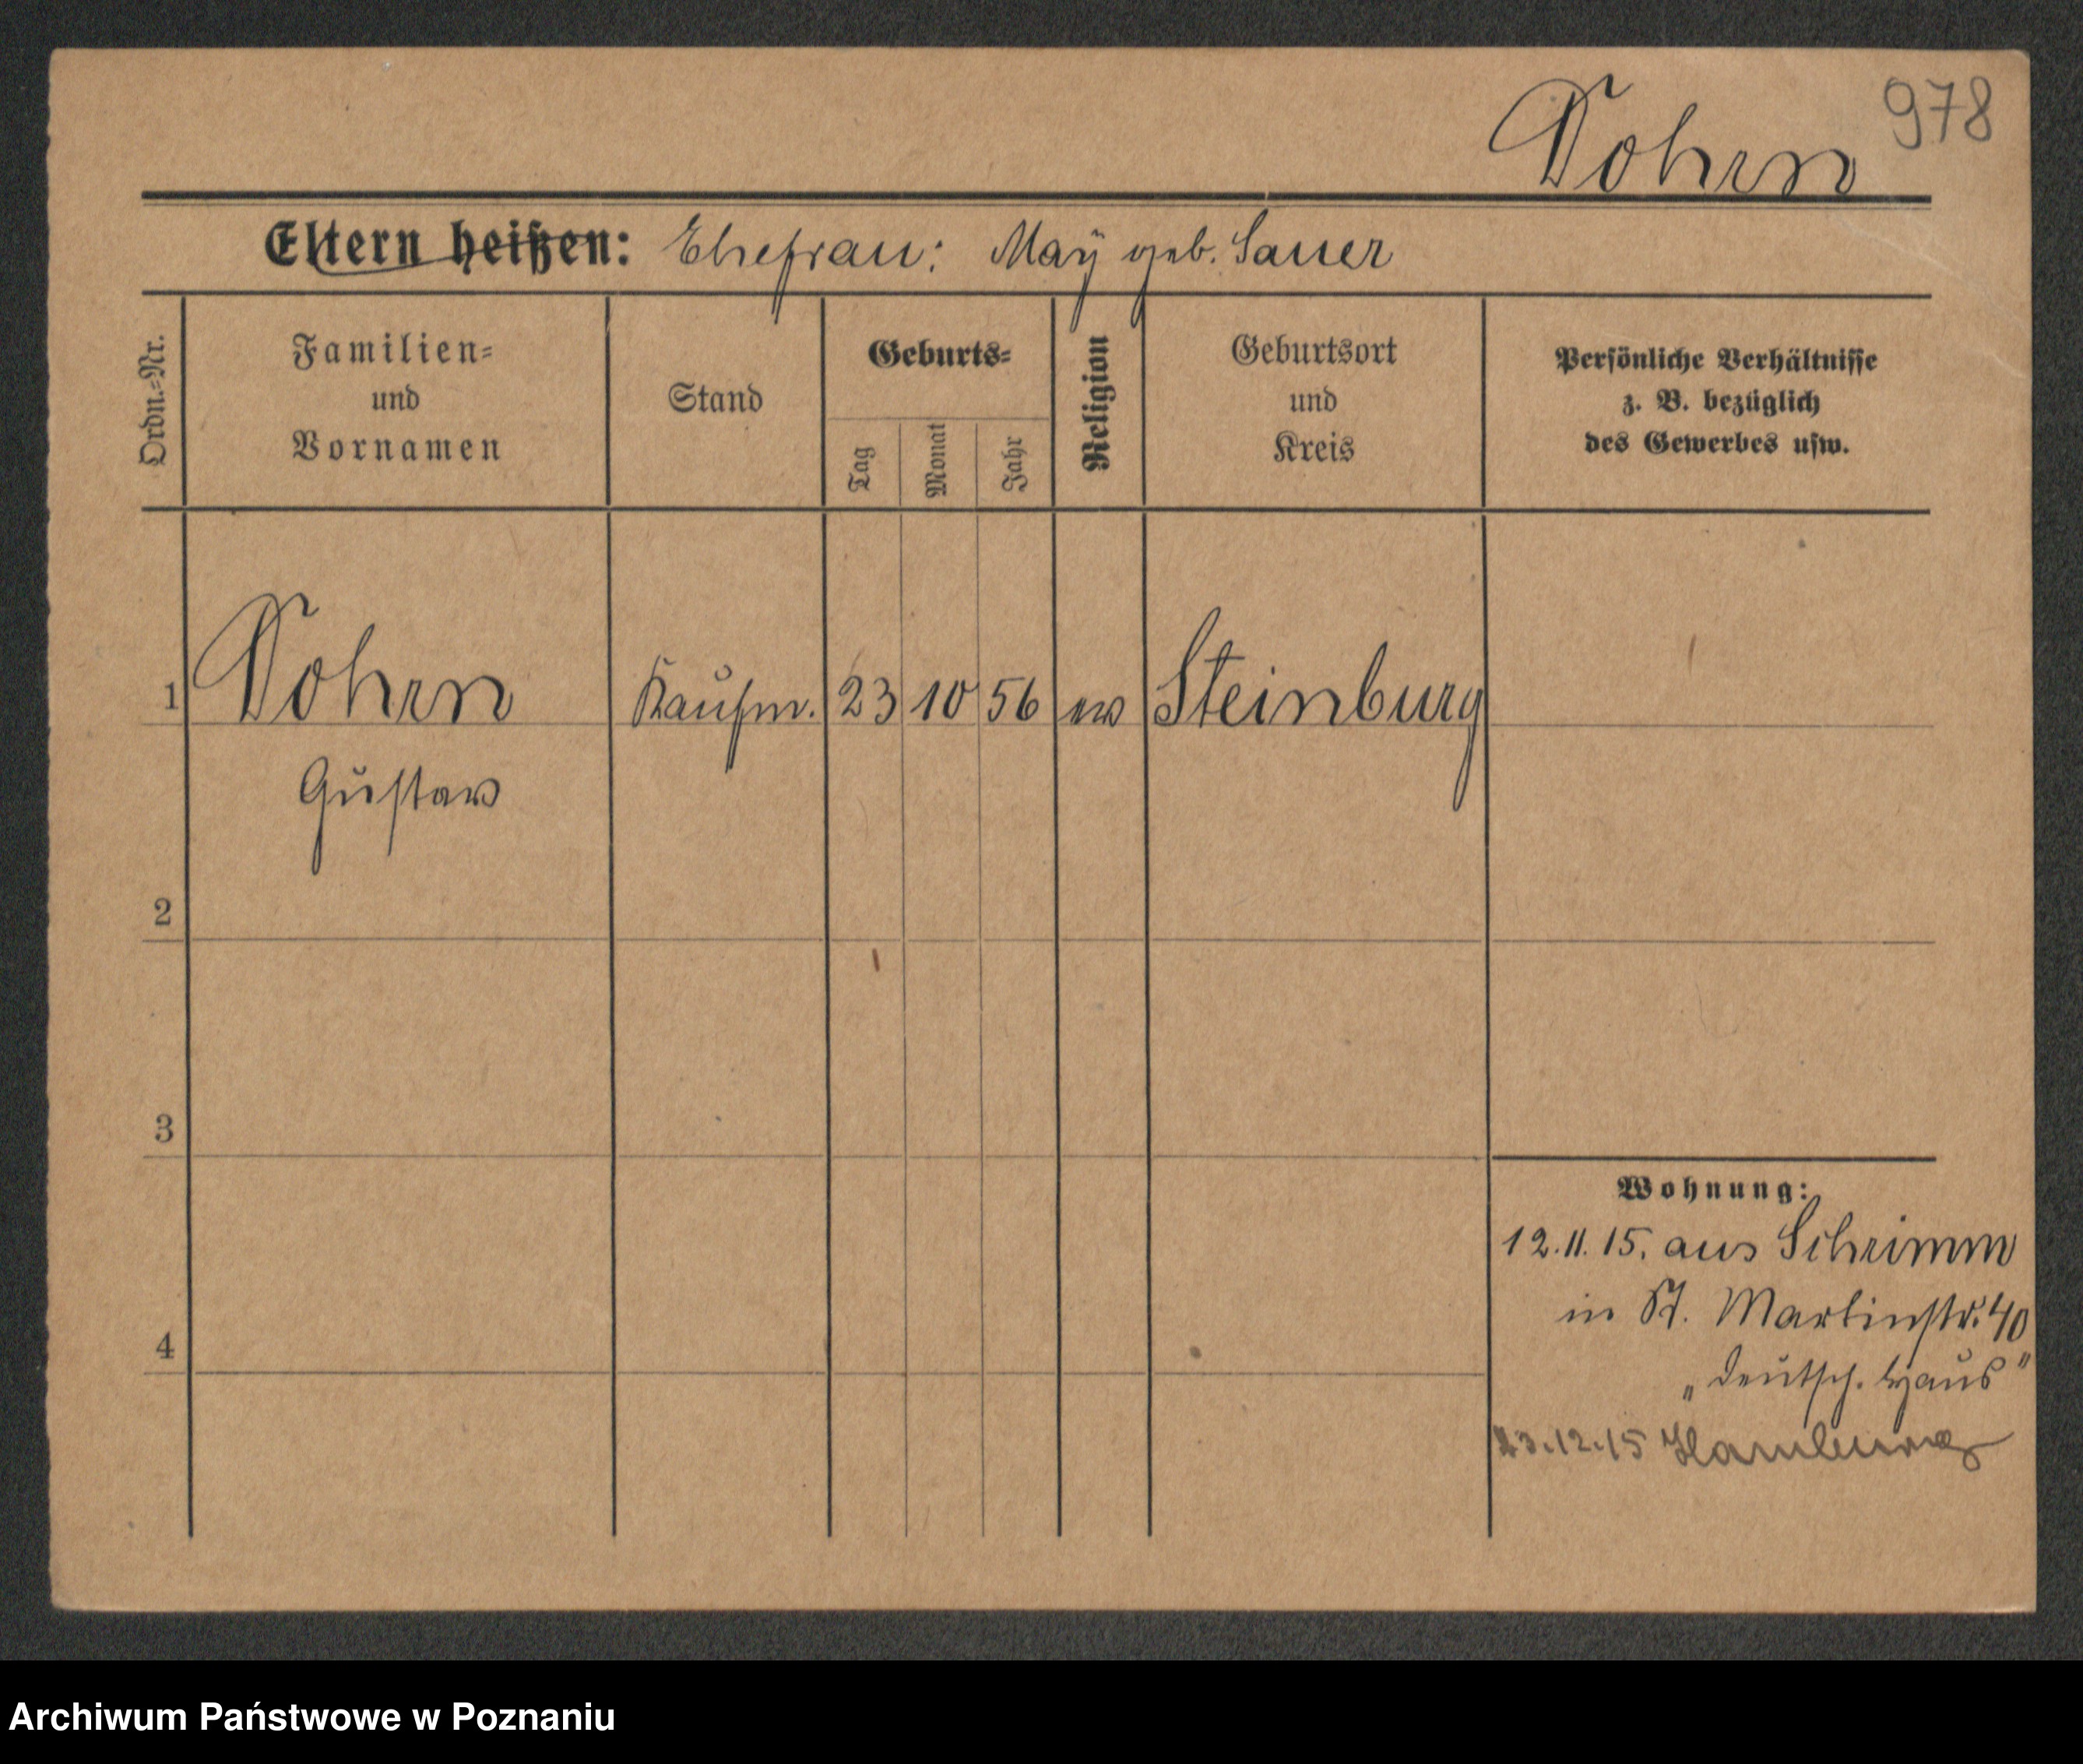 978
Dohrn
Eltern heißen: Ehefrau: Maÿ geb. Sauer
Ordn.-Nr.
Familien-
und
Vornamen
Stand
Geburts-
Tag
Monat
Jahr
Religion
Geburtsort
und
Kreis
Persönliche Verhältnisse
z. B. bezüglich
des Gewerbes usw.
1 Dohrn Kaufm. 23 10 56 ev Steinburg
Gustav
2
3
4
Wohnung:
12.11.15. aus Schrimm
in St. Martinstr. 40
„Deutsch. Haus"
23.12.15 Hamburg
Archiwum Państwowe w Poznaniu